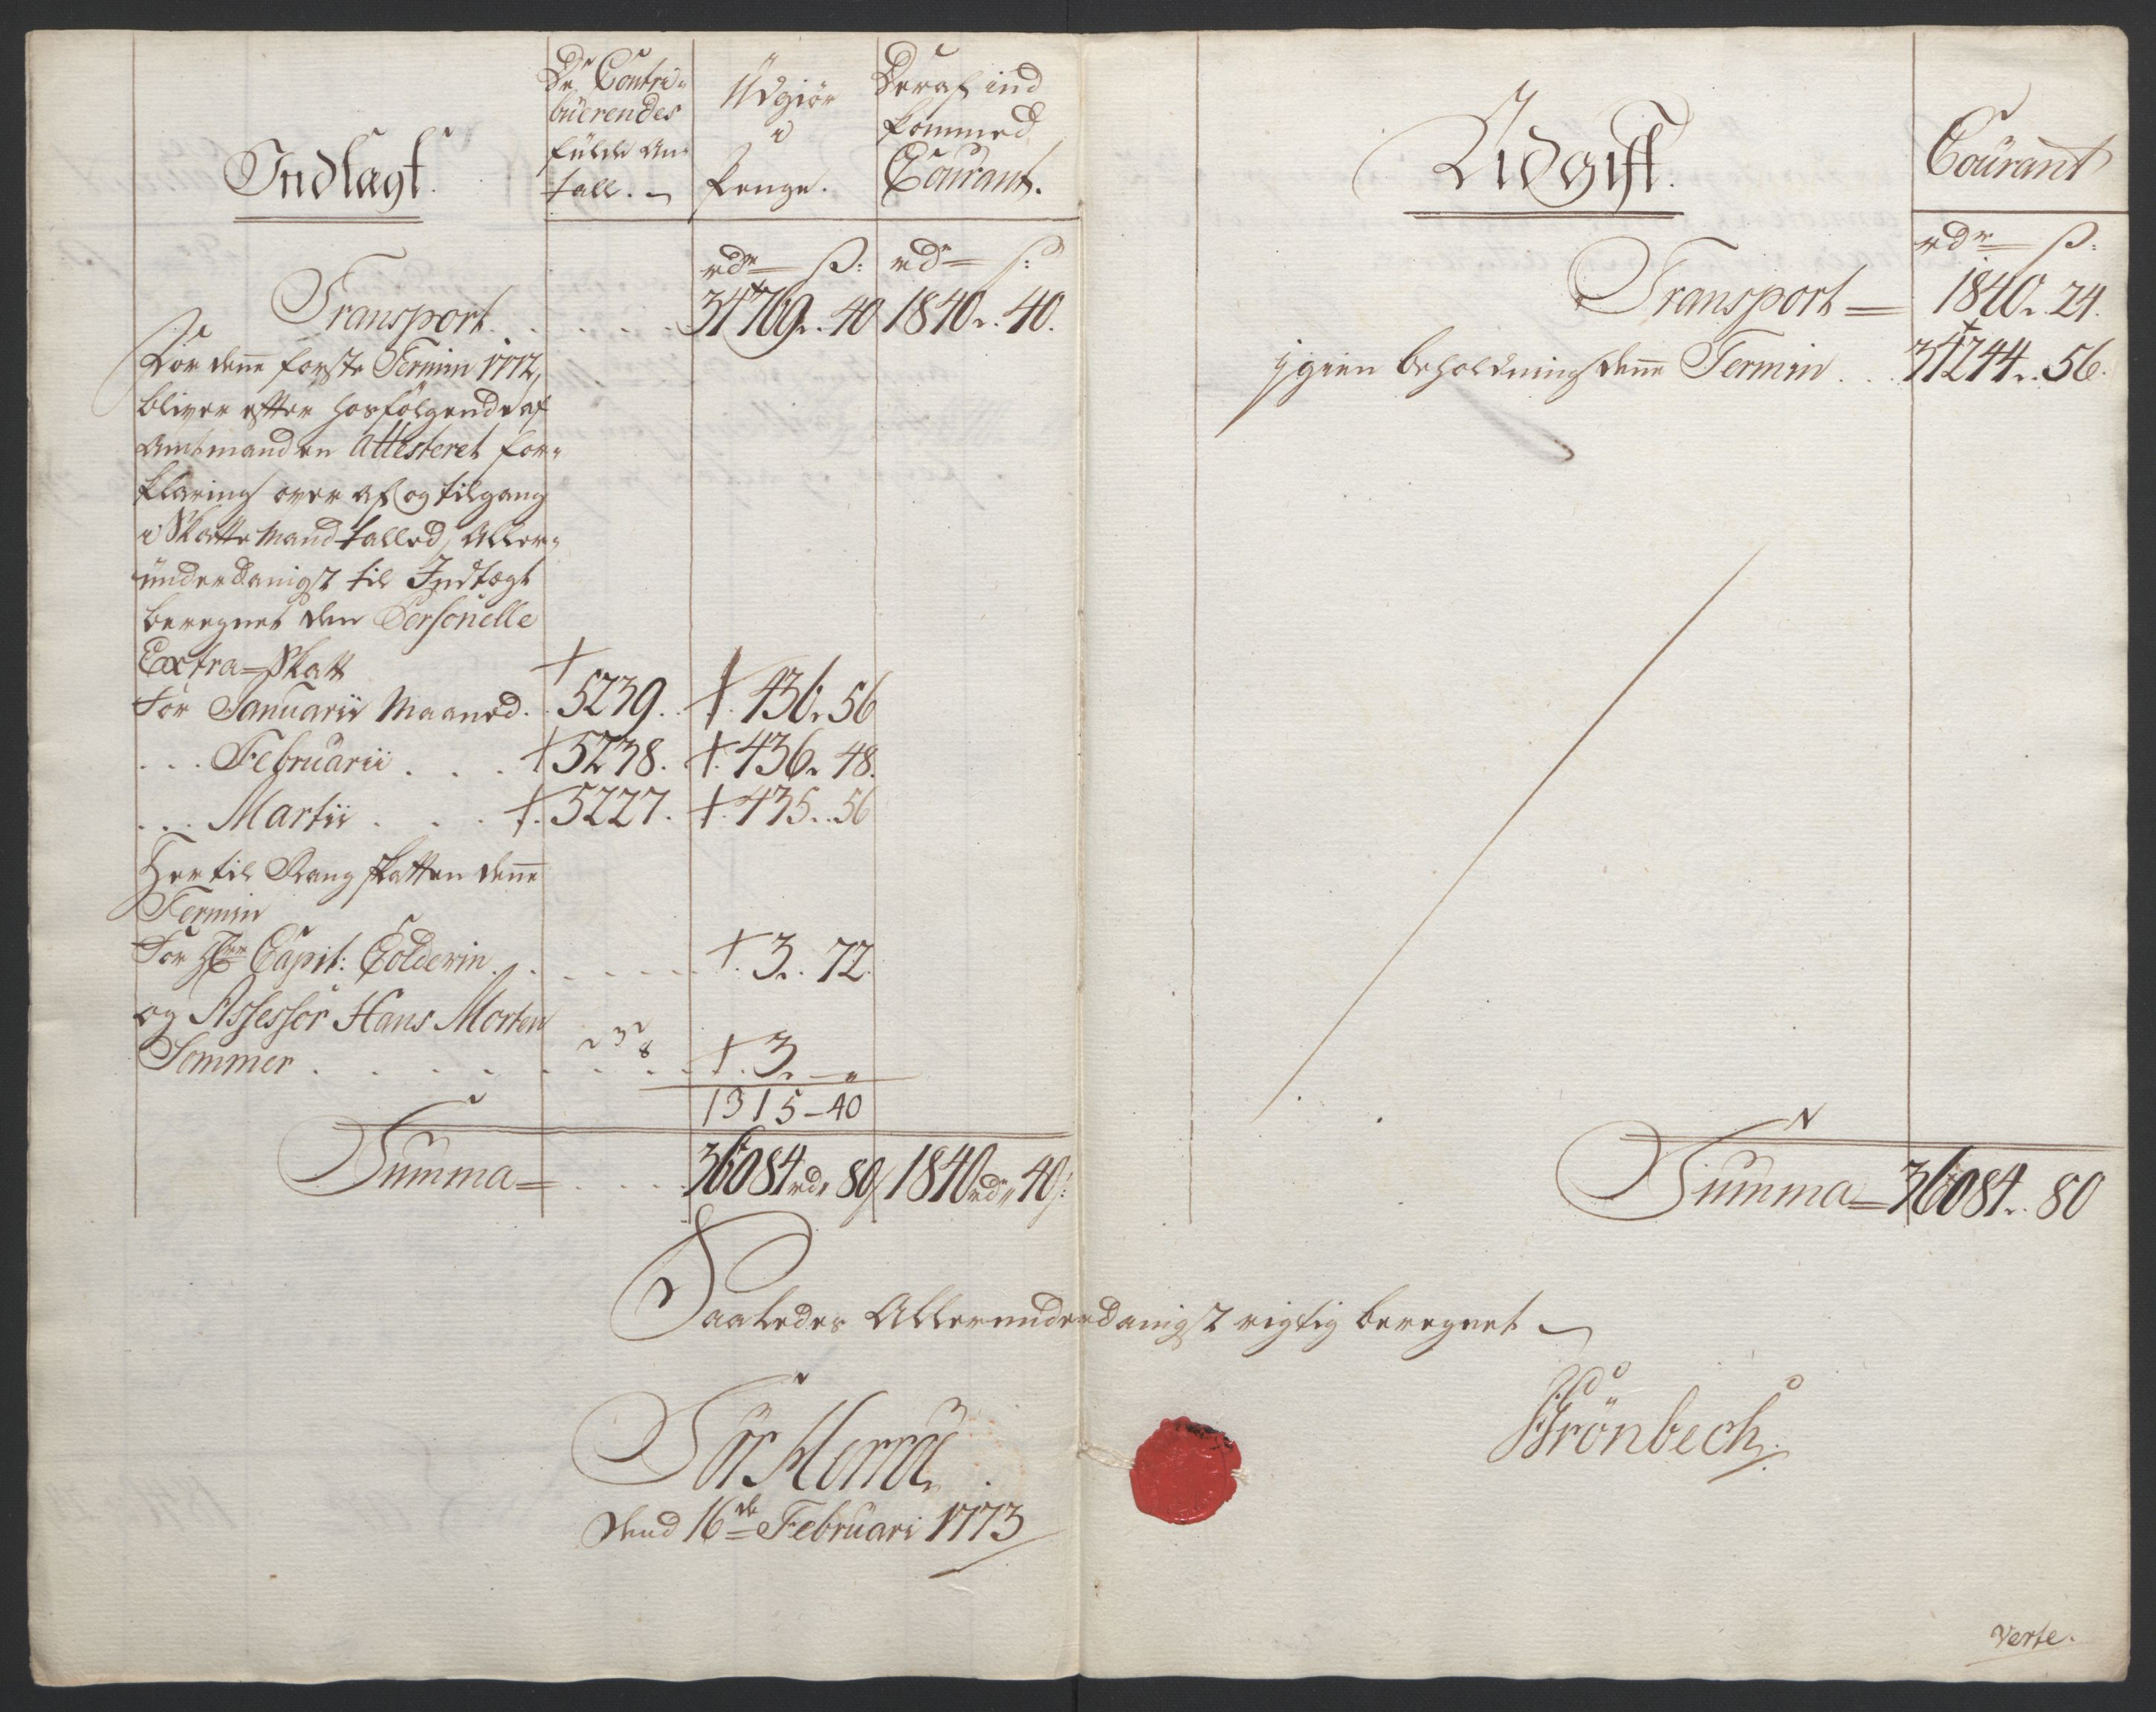 Indtægt.
De Contri-
buerendes
fulde An-
tall.
Udgiör
i
Penge.
Deraf ind
kommed
Courant.
rdr ß: rd ß:
Transport . . . . . 34769 .. 40 1840 .. 40.
For denne første Termin 1772,
bliver efter hosfölgende af
Amtmanden Attesteret for-
klaring over af og tilgang
i Skatte Mandtalled, Aller-
underdanigst til Indtægt
beregnet den Personelle
Extra=Skatt
for Januarii Maaned . . 5239 . 436 .. 56
. . . Februarii . . . 5238 . 436 .. 48.
. . . Martii . . . 5227 . 435 .. 56
Her til Rang skatten denne
Termin
For Hrr Capit: Colderin . . . . . 3 .. 72.
og Assessor Hans Morten
Sommer . . . . . . 3 .. „
1315 – 40
Summa= . . . . 36084 rdr 80 ß 1840 rdr 40 ß:
Udgift.
Courant
rdr ß:
Transport = 1840 .. 24.
igien beholdning denne Termin . . 34244 .. 56.
Summa= 36084 .. 80
Saaledes Allerunderdanigst rigtig beregnet
Sör Herröe
Dend 16de Februari 1773
Brönbech
Verte.